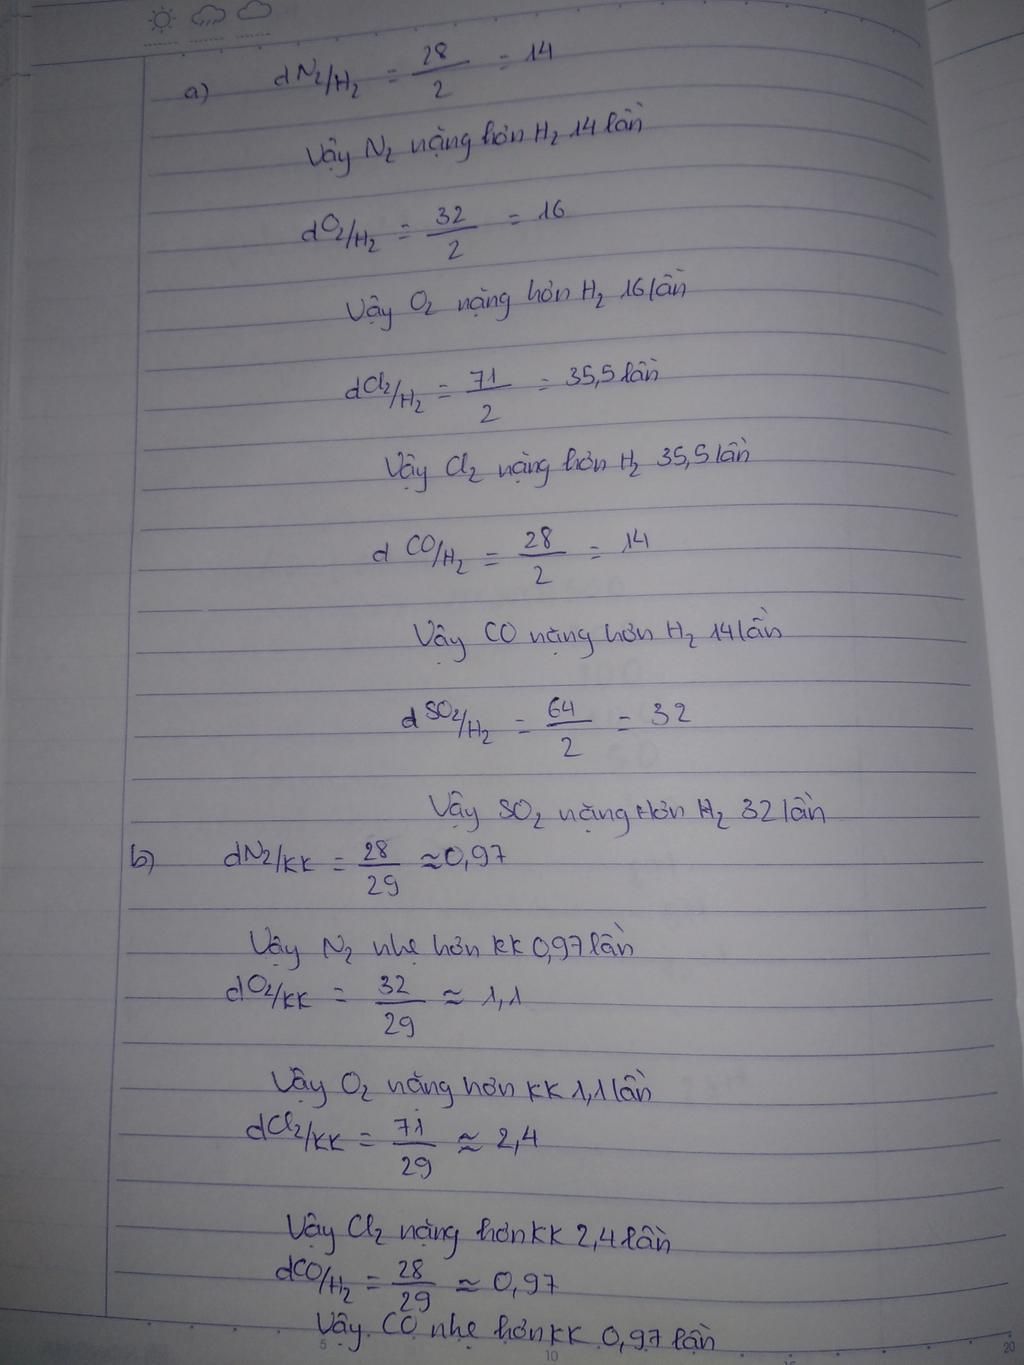 a) dN₂/H₂ = 28/2 = 14
Vậy N₂ nặng hơn H₂ 14 lần
dO₂/H₂ = 32/2 = 16
Vậy O₂ nặng hơn H₂ 16 lần
dCl₂/H₂ = 71/2 = 35,5 lần
Vậy Cl₂ nặng hơn H₂ 35,5 lần
d CO/H₂ = 28/2 = 14
Vậy CO nặng hơn H₂ 14 lần
d SO₂/H₂ = 64/2 = 32
Vậy SO₂ nặng hơn H₂ 32 lần
b) dN₂/KK = 28/29 ≈ 0,97
Vậy N₂ nhẹ hơn KK 0,97 lần
dO₂/KK = 32/29 ≈ 1,1
Vậy O₂ nặng hơn KK 1,1 lần
dCl₂/KK = 71/29 ≈ 2,4
Vậy Cl₂ nặng hơn KK 2,4 lần
dCO/H₂ = 28/29 ≈ 0,97
Vậy CO nhẹ hơn KK 0,97 lần
5 10 20